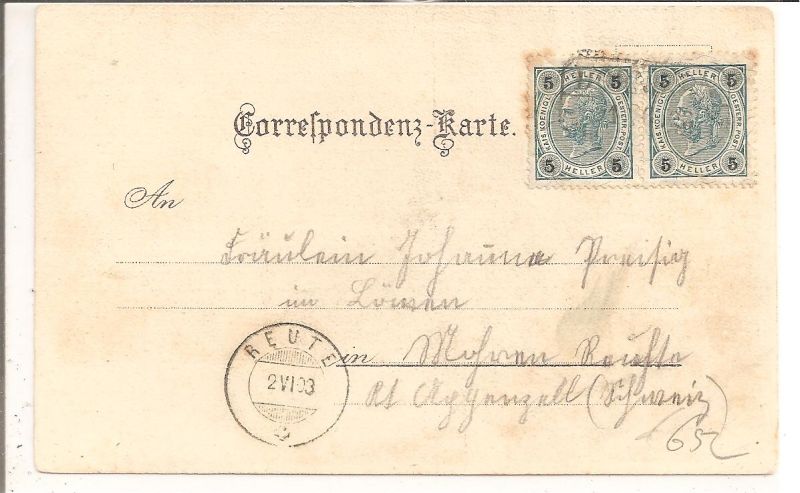 Correspondenz-Karte.
5 HELLER 5
KAIS. KOENIGL. OESTERR. POST.
5 HELLER 5
5 HELLER 5
KAIS. KOENIGL. OESTERR. POST.
5 HELLER 5
An
Fräulein Johanna Preisig
im Löwen
in Mohren Reuhte
Kt Appenzell (Schweiz)
REUTE
2 VI 03
652